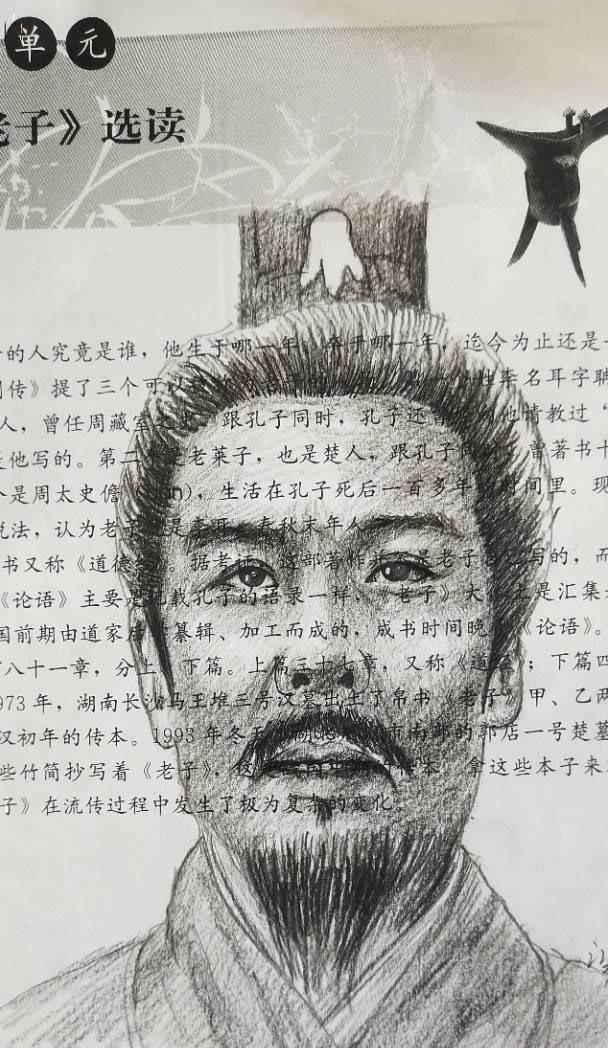 单元
老子》选读
的人究竟是谁，他生于哪一年，卒于哪一年，迄今为止还是
传》提了三个可以 姓李名耳字聃
人，曾任周藏室之史，跟孔子同时，孔子还 他请教过“
是他写的。第二 是老莱子，也是楚人，跟孔子同 曾著书十
个是周太史儋 ，生活在孔子死后一百多年的时间里。现
说法，认为老子 是李耳，春秋末年人
书又称《道德 据考证，这部著作并不是老子自己写的，而
《论语》主要是记载孔子的语录一样，《老子》大 上是汇集
国前期由道家后 纂辑、加工而成的，成书时间晚 《论语》。
八十一章，分上、下篇。上篇三十七章，又称《道经》；下篇四
973 年，湖南长沙马王堆三号汉墓出土了帛书《老子》甲、乙两
汉初年的传本。1993 年冬天，湖北 市南郊的郭店一号楚墓
些竹简抄写着《老子》，这是 本，拿这些本子来
子》在流传过程中发生了极为复杂的变化。